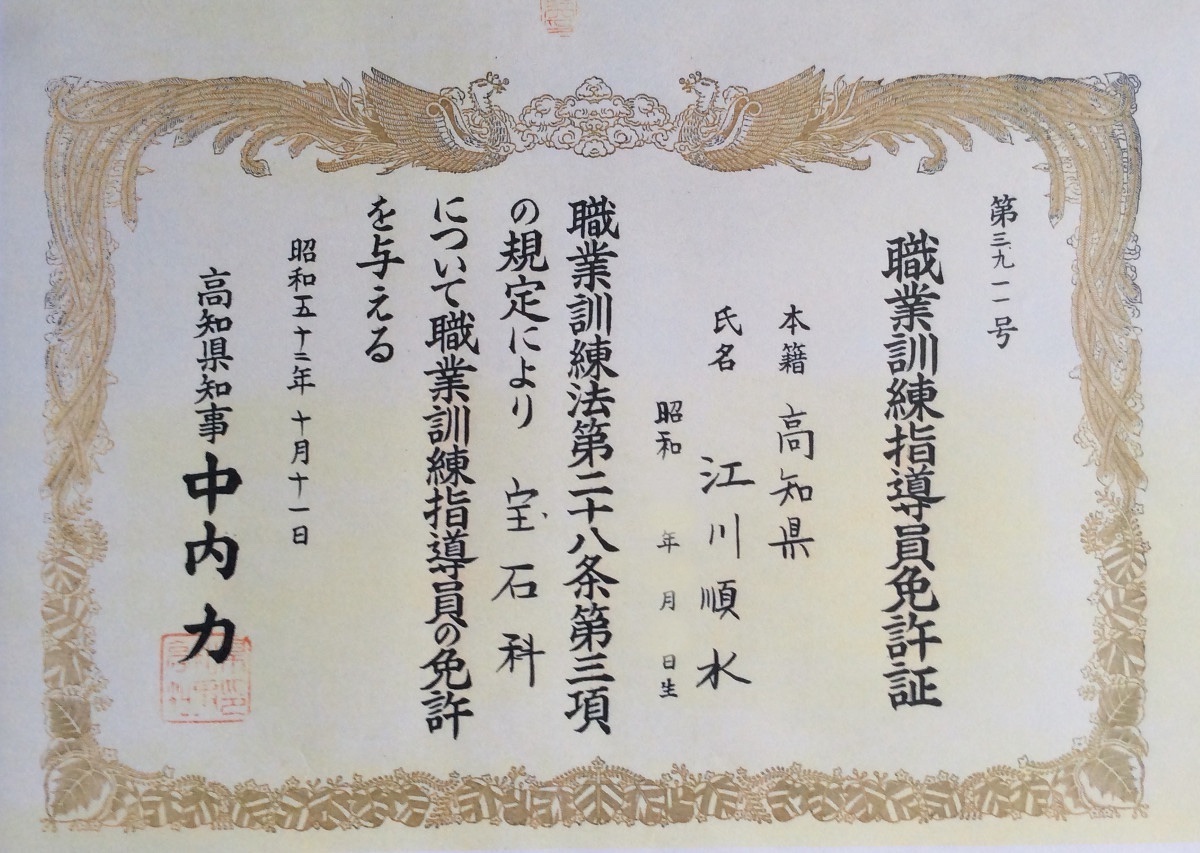 第三、九一一号
職業訓練指導員免許証
本籍 高知県
氏名 江川順水
昭和 年 月 日生
職業訓練法第二十八条第三項
の規定により 宝石科
について職業訓練指導員の免許
を与える
昭和五十三年十月十一日
高知県知事 中内力